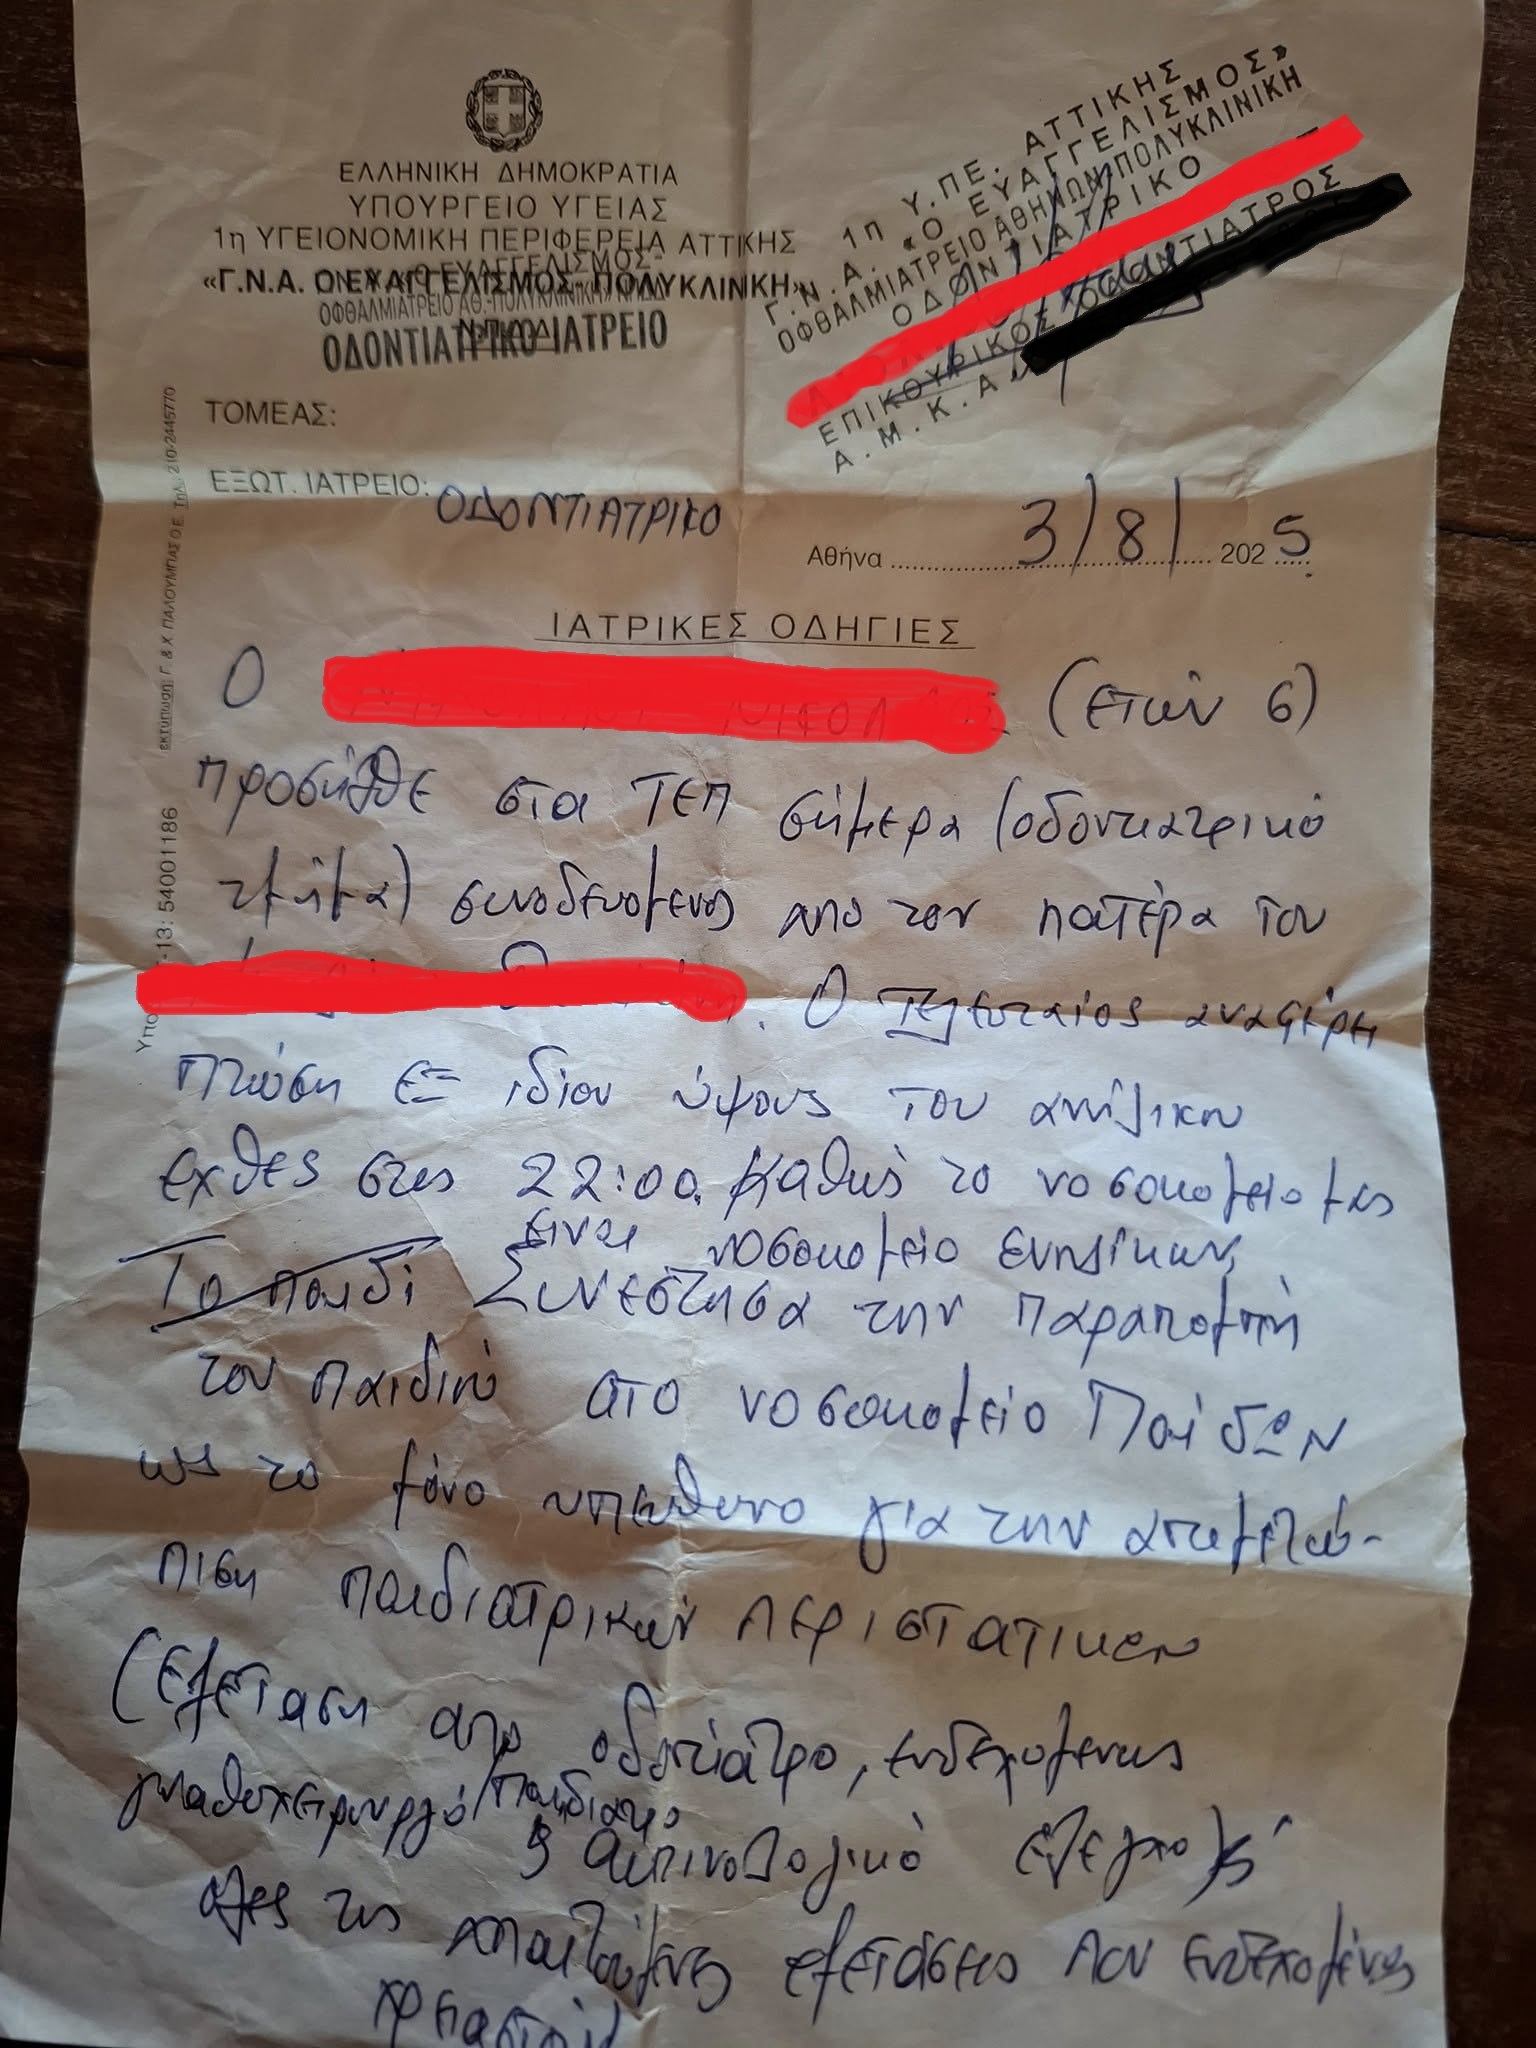 ΕΛΛΗΝΙΚΗ ΔΗΜΟΚΡΑΤΙΑ
ΥΠΟΥΡΓΕΙΟ ΥΓΕΙΑΣ
1η ΥΓΕΙΟΝΟΜΙΚΗ ΠΕΡΙΦΕΡΕΙΑ ΑΤΤΙΚΗΣ
«Γ.Ν.Α. Ο ΕΥΑΓΓΕΛΙΣΜΟΣ- ΠΟΛΥΚΛΙΝΙΚΗ»
ΟΦΘΑΛΜΙΑΤΡΕΙΟ ΑΘ.-ΠΟΛΥΚΛΙΝΙΚΗ» ΝΠΔΔ
Ν.Π.Δ.Δ.
ΟΔΟΝΤΙΑΤΡΙΚΟ ΙΑΤΡΕΙΟ
1η Υ.ΠΕ. ΑΤΤΙΚΗΣ
Γ.Ν.Α. «Ο ΕΥΑΓΓΕΛΙΣΜΟΣ»
ΟΦΘΑΛΜΙΑΤΡΕΙΟ ΑΘΗΝΩΝ-ΠΟΛΥΚΛΙΝΙΚΗ
ΟΔΟΝΤΙΑΤΡΙΚΟ
ΕΠΙΚΟΥΡΙΚΟΣ ΟΔΟΝΤΙΑΤΡΟΣ
Α.Μ.Κ.Α.
ΤΟΜΕΑΣ:
ΕΞΩΤ. ΙΑΤΡΕΙΟ: ΟΔΟΝΤΙΑΤΡΙΚΟ
Αθήνα 3/8/2025
ΙΑΤΡΙΚΕΣ ΟΔΗΓΙΕΣ
Ο (ετών 6)
προσήλθε στα ΤΕΠ σήμερα (οδοντιατρικό
τμήμα) συνοδευομενος απο τον πατέρα του
. Ο τελευταίος αναφέρει
πτώση εξ ιδίου ύψους του ανήλικου
εχθες στις 22:00. Καθώς το νοσοκομειο μας
ειναι νοσοκομείο ενηλίκων,
Το παιδί Συνέστησα την παραπομπή
του παιδιού στο νοσοκομείο Παίδων
ως το μόνο υπευθυνο για την αντιμετώ-
πιση παιδιατρικών περιστατικων
(Εξεταση απο οδοντίατρο, ενδεχομενως
γναθοχειρουργό/παιδιατρο
ακτινολογικό ελεγχο)
ολες τις απαιτούμενες εξετάσεις που ενδεχομένως
χρειαστούν
εκτύπωση: Γ. & Χ. ΠΑΛΟΥΜΠΑΣ Ο.Ε. Τηλ.: 210-2445770
-13: 54001186